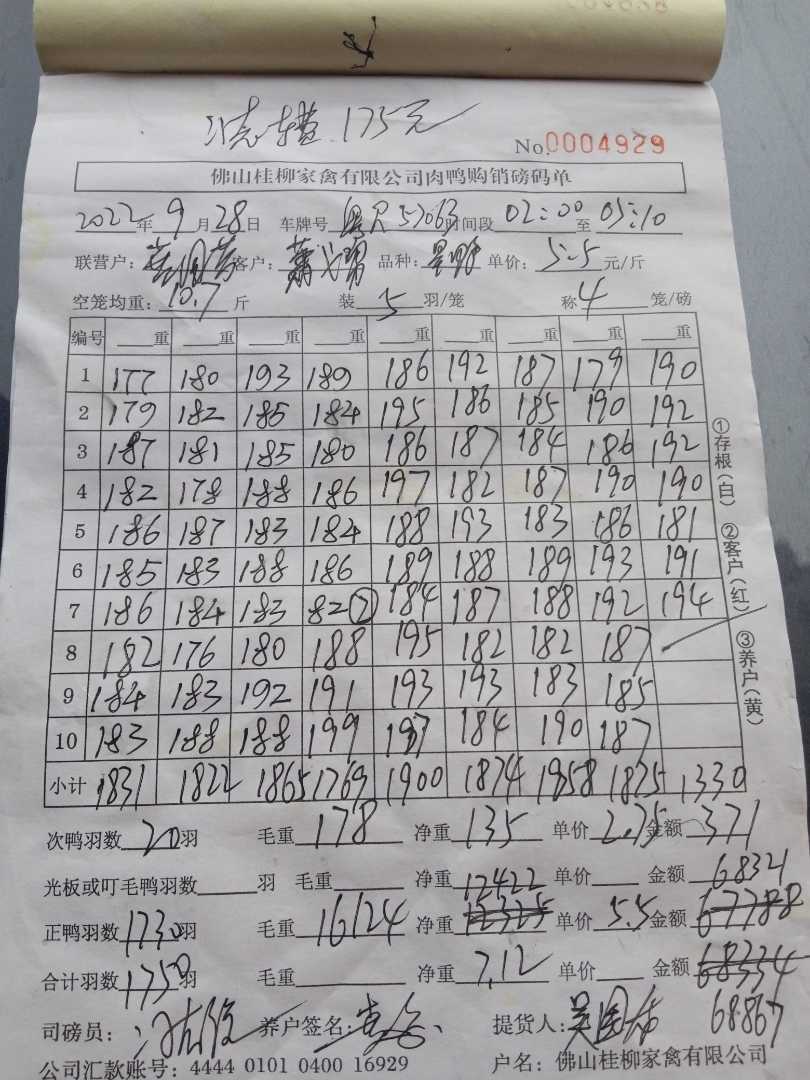 洗车搭175元
No.0004929
佛山桂柳家禽有限公司肉鸭购销磅码单
2022年9月28日 车牌号 53063 时间段 02:00 至 05:10
联营户: 客户: 萧 品种: 单价: 5.5 元/斤
空笼均重: 10.7 斤 装 5 羽/笼 称 4 笼/磅
编号 重 重 重 重 重 重 重 重 重
1 177 180 193 189 186 192 187 179 190
2 179 182 185 184 195 186 185 190 192
3 187 181 185 180 186 187 184 186 192
4 182 178 188 186 197 182 187 190 190
5 186 187 183 184 188 193 183 186 181
6 185 183 188 186 189 188 189 193 191
7 186 184 183 82② 184 187 188 192 194
8 182 176 180 188 195 182 182 187
9 184 183 192 191 193 193 183 185
10 183 188 188 199 187 184 190 187
小计 1831 1822 1865 1769 1900 1874 1858 1875 1330
①存根(白) ②客户(红) ③养户(黄)
次鸭羽数 20 羽 毛重 178 净重 135 单价 2.75 金额 371
光板或叮毛鸭羽数 羽 毛重 净重 12422 单价 金额 68321
正鸭羽数 1730 羽 毛重 16124 净重 12325 单价 5.5 金额 67788
合计羽数 1750 羽 毛重 净重 7.12 单价 金额 68334
司磅员: 养户签名: 提货人: 68867
公司汇款账号: 4444 0101 0400 16929 户名: 佛山桂柳家禽有限公司